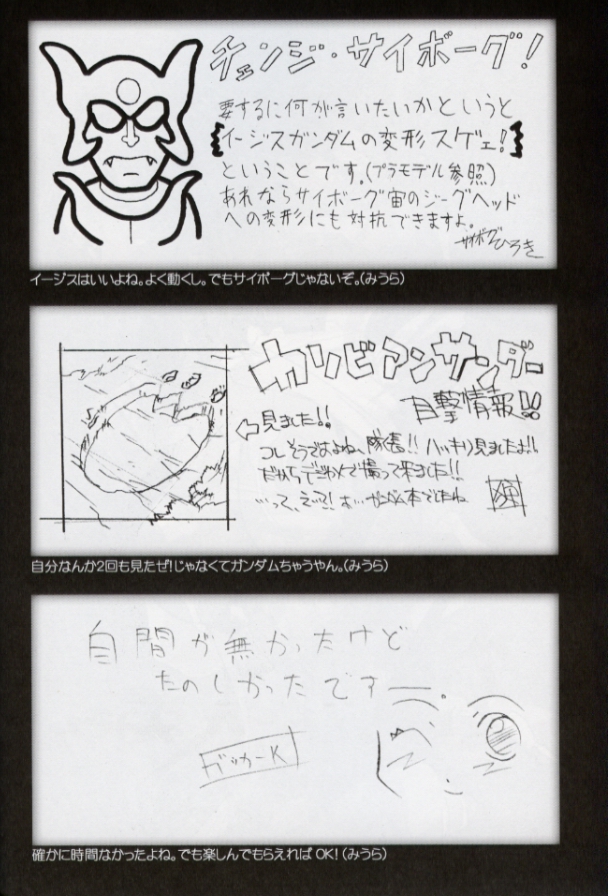 チェンジ・サイボーグ!
要するに何が言いたいかというと
イージスガンダムの変形スゲェ!
ということです。(プラモデル参照)
あれならサイボーグ宙のジーグヘッド
への変形にも対抗できますよ。
サイボーグひろき
イージスはいいよね。よく動くし。でもサイボーグじゃないぞ。(みうら)
カリビアンサンダー
目撃情報!!
見ました!!
コレそうですよね、隊長!! ハッキリ見ましたよ!!
だからデジカメで撮って来ました!!
…って、えっ!?
自分なんか2回も見たぜ!じゃなくてガンダムちゃうやん。(みうら)
自間が無かったけど
たのしかったですー。
ガッカーK
確かに時間なかったよね。でも楽しんでもらえれば OK!(みうら)